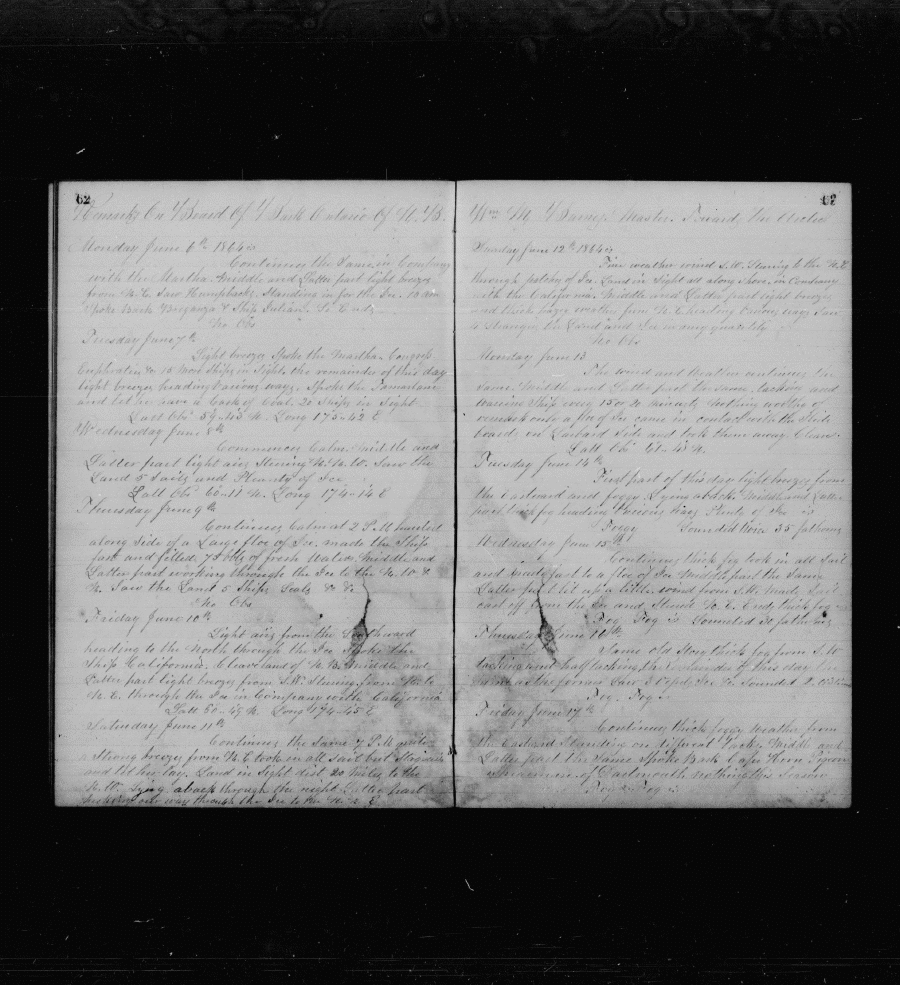 62
Remarks On Board Of Bark Ontario Of N. B.
Monday June 6th 1864
Continues the Same in Company
with the Martha. Middle and Latter part light breeze
from N. E. Saw Humpbacks. Standing in for the Ice.
Spoke Bark & Ship Julian.
No Obs
Tuesday June 7th
Light breeze Spoke the Martha. Congress
Euphrates &c 15 More Ships in Sight. the remainder of this day
light breeze heading Various ways. Spoke the Tamerlane
and let her have a Cask of Coal. 20 Ships in Sight
Latt Obs 59-43 N. Long 175-42 E
Wednesday June 8th
Commences Calm. Middle and
Latter part light airs Stering N. N. W. Saw the
Land 5 Sails and Pleanty of Ice.
Latt Obs 60-11 N. Long 174-14 E
Thursday June 9th
Continues Calm at 2 P.M hauled
along Side of a Large floe of Ice. made the Ship
fast and filled 75 bbls of fresh Water Middle and
Latter part working through the Ice to the N. W &
N. Saw the Land 5 Ships Seals &c &c
No Obs
Friday June 10th
Light airs from the Southward
heading to the North through the Ice Spoke the
Ship California. Cleaveland of N. B. Middle and
Latter part light breeze from S.W. Stering from
N. E. through the Ice in Company with California
Latt 60-49 N Long 174-45 E
Saturday June 11th
Continues the Same 7 P.M
a Strong breeze from N. E took in all Sail but
and let her lay. Land in Sight dist 20 Miles to the
N. W. Lying aback through the night Latter part
working our way through the Ice to the N. N. E
Wm M. Barnes Master. Toward the Arctic
Sunday June 12th 1864
Fine weather wind S.W. Stering to the N. E
through patches of Ice. Land in Sight all along Shore, in Company
with the California. Middle and Latter part light breeze
and thick hazy weather from N. E. heading Various ways Saw
4 Strangers the Land and Ice in any quantity
No Obs
Monday June 13
The wind and Weather continues the
Same. Middle and Latter part the Same. tacking and
Wearing Ship every 15 or 20 minuets Nothing worthy of
remark only a floe of Ice came in contact with the
boards on Larbord Side and took them away Clean.
Latt Obs 61-43 N.
Tuesday June 14th
First part of this day light breeze from
the Eastward and foggy Lying aback. Middle and Latter
part thick fog heading Various ways Plenty of Ice
Foggy Sounded twice 35 fathoms
Wednesday June 15th
Continues thick fog took in all Sail
and made fast to a floe of Ice Middle part the Same
Latter part lit up a little. wind from S.W. Made Sail
cast off from the Ice and Steard N. E. Ends thick fog
Fog Fog Sounded 30 fathoms
Thursday June 16th
Same old Story thick fog from S. W
tacking and half tacking the remainder of this day
Saw
Fog. Fog.
Friday June 17th
Continues thick foggy weather from
the Eastward Standing on different Tacks Middle and
Latter part the Same Spoke Bark Cape Horn Pigeon
of Dartmouth nothing this Season
Fog Fog